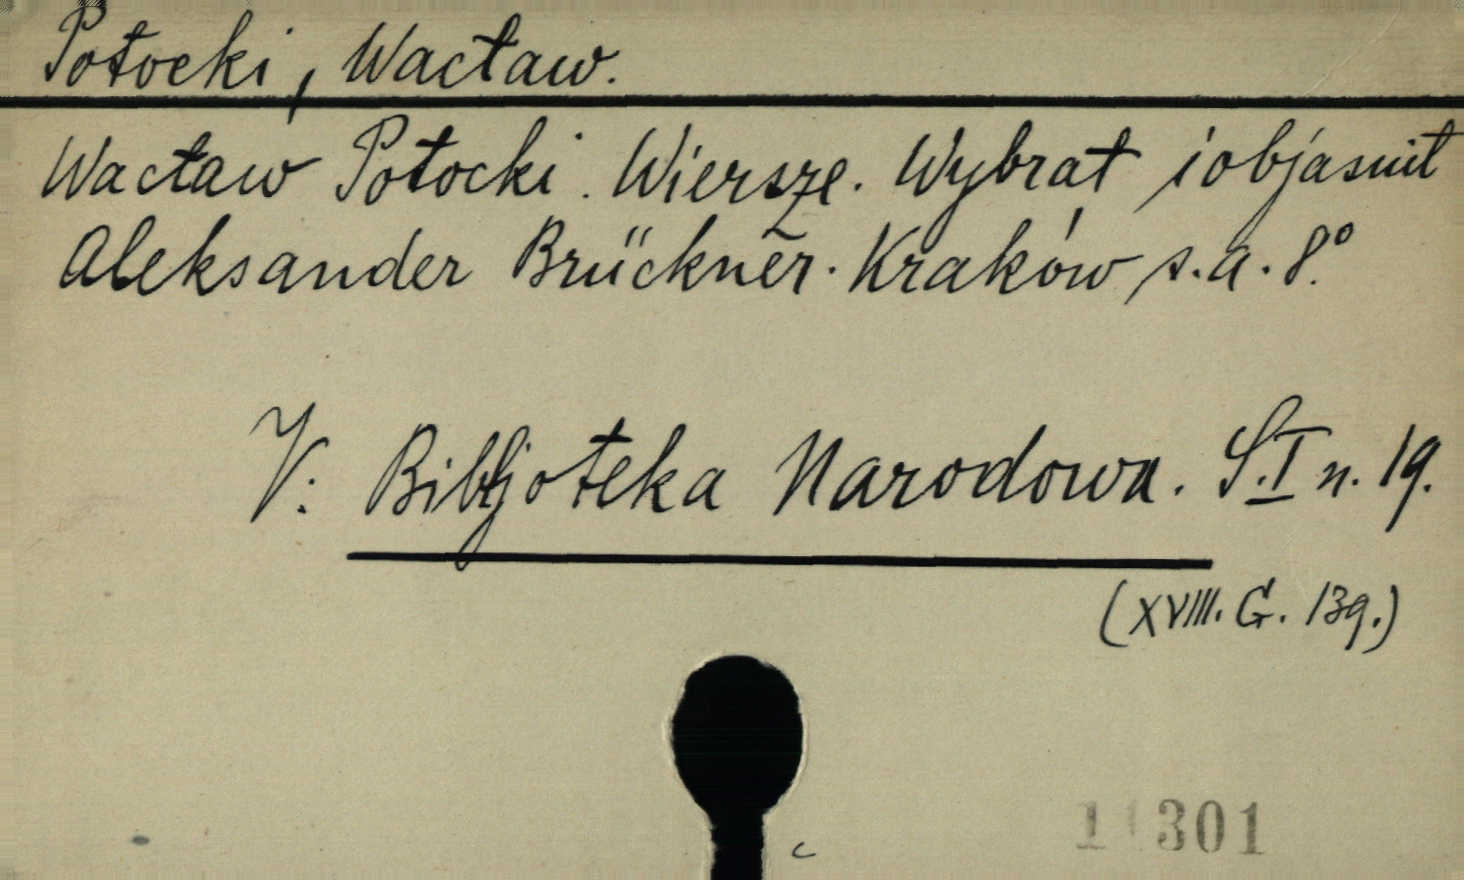 Potocki, Wacław.
Wacław Potocki. Wiersze. Wybrał i objasnił
Aleksander Brückner. Kraków s.a. 8.°
V: Bibljoteka Narodowa. S.I n. 19.
(XVIII. G. 139.)
11301
c